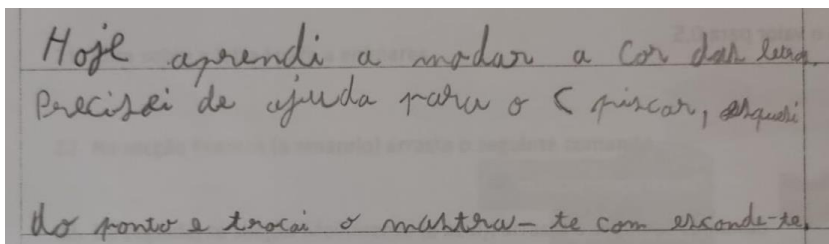 Hoje aprendi a modar a cor das luzes.
Precisei de ajuda para o piscar, esqueci
do ponto e trocei o mastra-te com esconde-te.